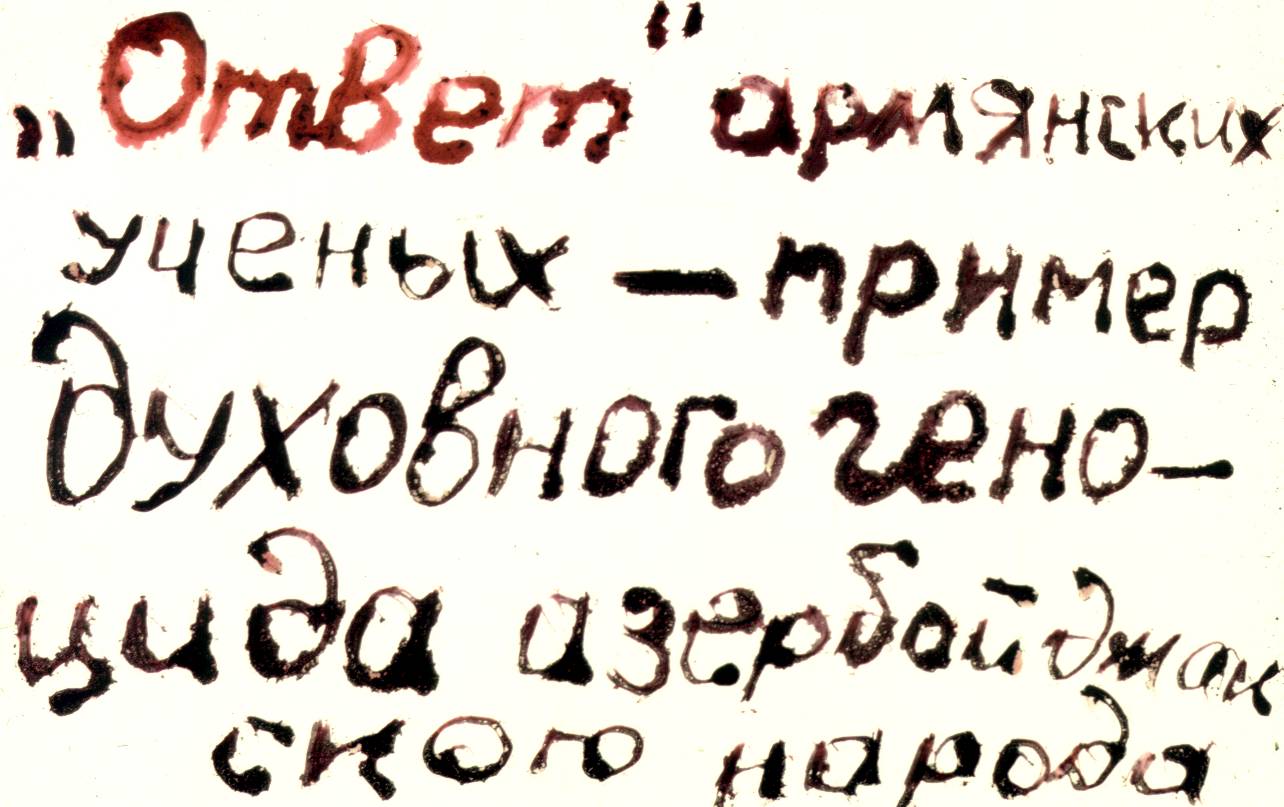 „Ответ“ армянских
ученых — пример
духовного гено-
цида азербайджан
ского народа